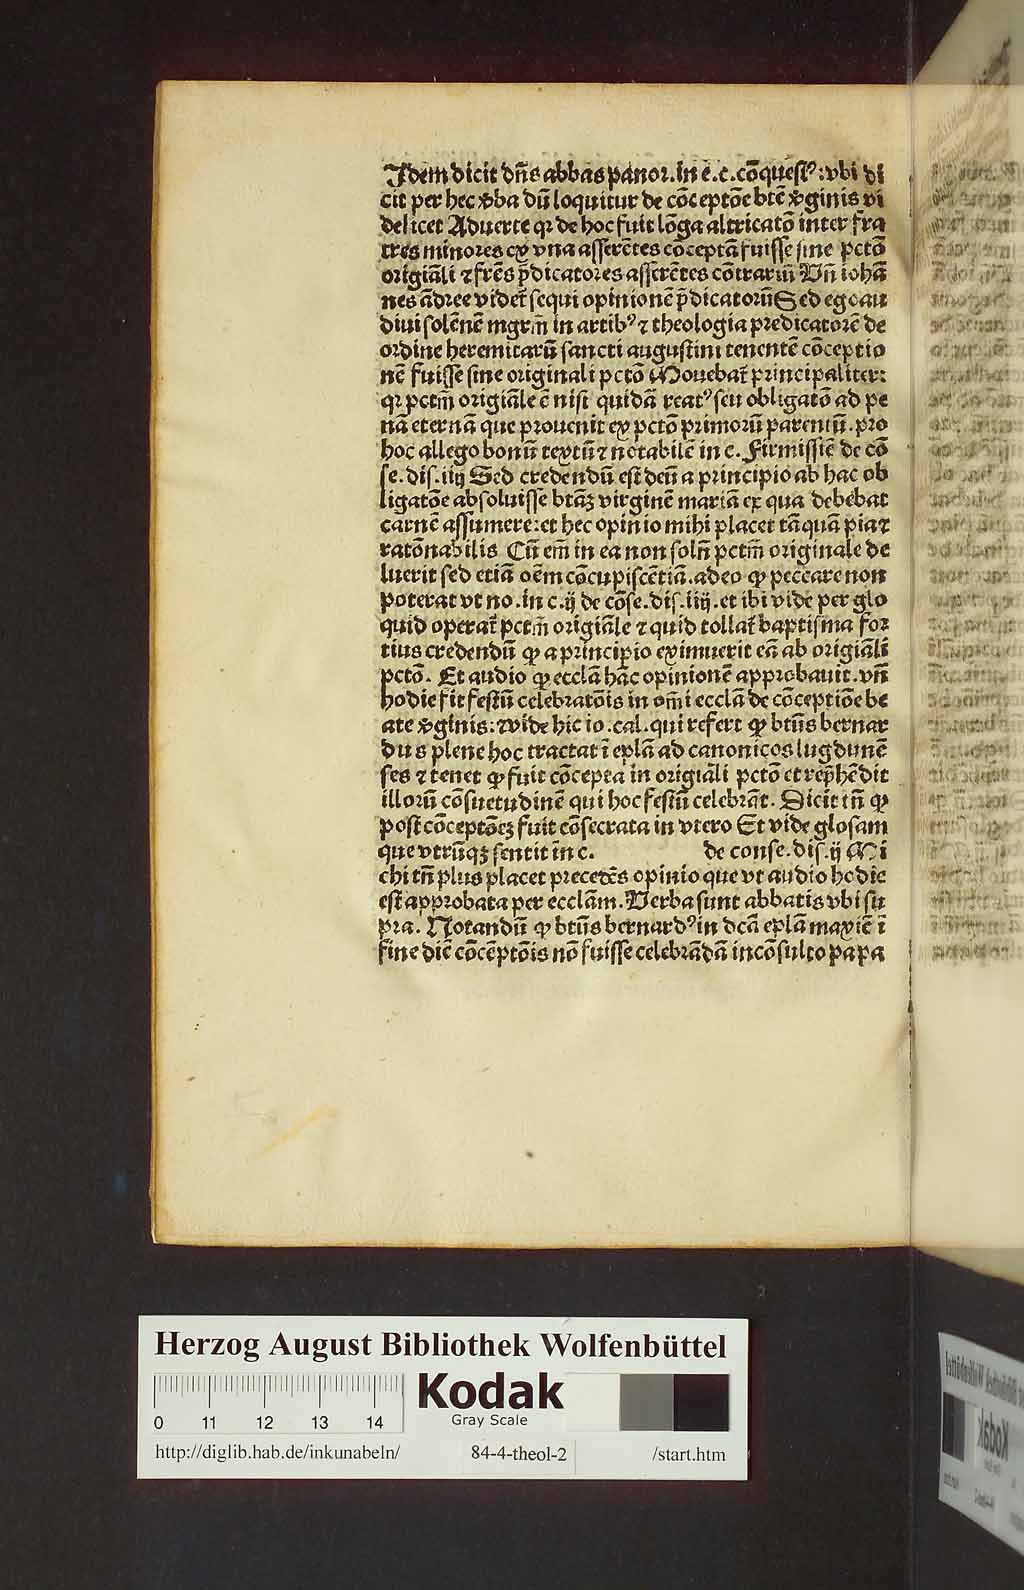 Idem dicit dn̄s abbas panor. in ē. c. cōquestꝰ: vbi di
cit per hec ꝟba dū loquitur de cōceptōe btē ꝟginis vi
delicet Aduerte qꝛ de hoc fuit lōga altricatō inter fra
tres minores ex vna asserētes cōceptā fuisse sine pctō
origiāli ⁊ frēs p̄dicatores asserētes cōtrariū Vn̄ iohā
nes ādree videt̄ sequi opinionē p̄dicatorū Sed ego au
diui solēnē mgrm̄ in artibꝰ ⁊ theologia predicatorē de
ordine heremitarū sancti augustini tenentē cōceptio
nē fuisse sine originali pctō Mouebat̄ principaliter:
qꝛ pctm̄ origiāle ē nisi quidā reatꝰ seu obligatō ad pe
nā eternā que prouenit ex pctō primorū parentū. pro
hoc allego bonū textū ⁊ notabilē in c. Firmissiē de cō
se. dis. iiij Sed credendū est deū a principio ab hac ob
ligatōe absoluisse btāꝫ virginē mariā ex qua debebat
carnē assumere: et hec opinio mihi placet tāquā pia ⁊
ratōnabilis Cū em̄ in ea non solū pctm̄ originale de
luerit sed etiā oēm cōcupiscētiā. adeo ꝙ peccare non
poterat vt no. in c. ij de cōse. dis. iiij. et ibi vide per glo
quid operat̄ pctm̄ origiāle ⁊ quid tollat̄ baptisma for
tius credendū ꝙ a principio eximuerit eā ab origiāli
pctō. Et audio ꝙ ecclā hāc opinionē approbauit. vn̄
hodie fit festū celebratōis in om̄i ecclā de cōceptiōe be
ate ꝟginis: ⁊ vide hic io. cal. qui refert ꝙ btūs bernar
dus plene hoc tractat ī eplā ad canonicos lugdunē
ses ⁊ tenet ꝙ fuit cōcepta in origiāli pctō et rep̄hēdit
illorū cōsuetudinē qui hoc festū celebrāt. Dicit tn̄ ꝙ
post cōceptōeꝫ fuit cōsecrata in vtero Et vide glosam
que vtrūqꝫ sentit in c. de conse. dis. ij Mi
chi tn̄ plus placet precedēs opinio que vt audio hodie
est approbata per ecclām. Verba sunt abbatis vbi su
pra. Notandū ꝙ btūs bernardꝰ in dcā eplā maxiē ī
fine diē cōcēptōis nō fuisse celebrādā incōsulto papa
Herzog August Bibliothek Wolfenbüttel
Kodak
Gray Scale
0 11 12 13 14
http://diglib.hab.de/inkunabeln/ 84-4-theol-2 /start.htm